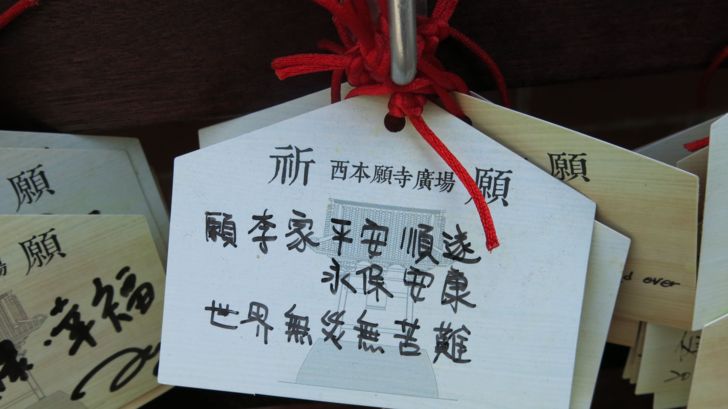 祈 西本願寺廣場 願
願李家平安順遂
永保安康
世界無災無苦難
願
場 願
幸福
願
over